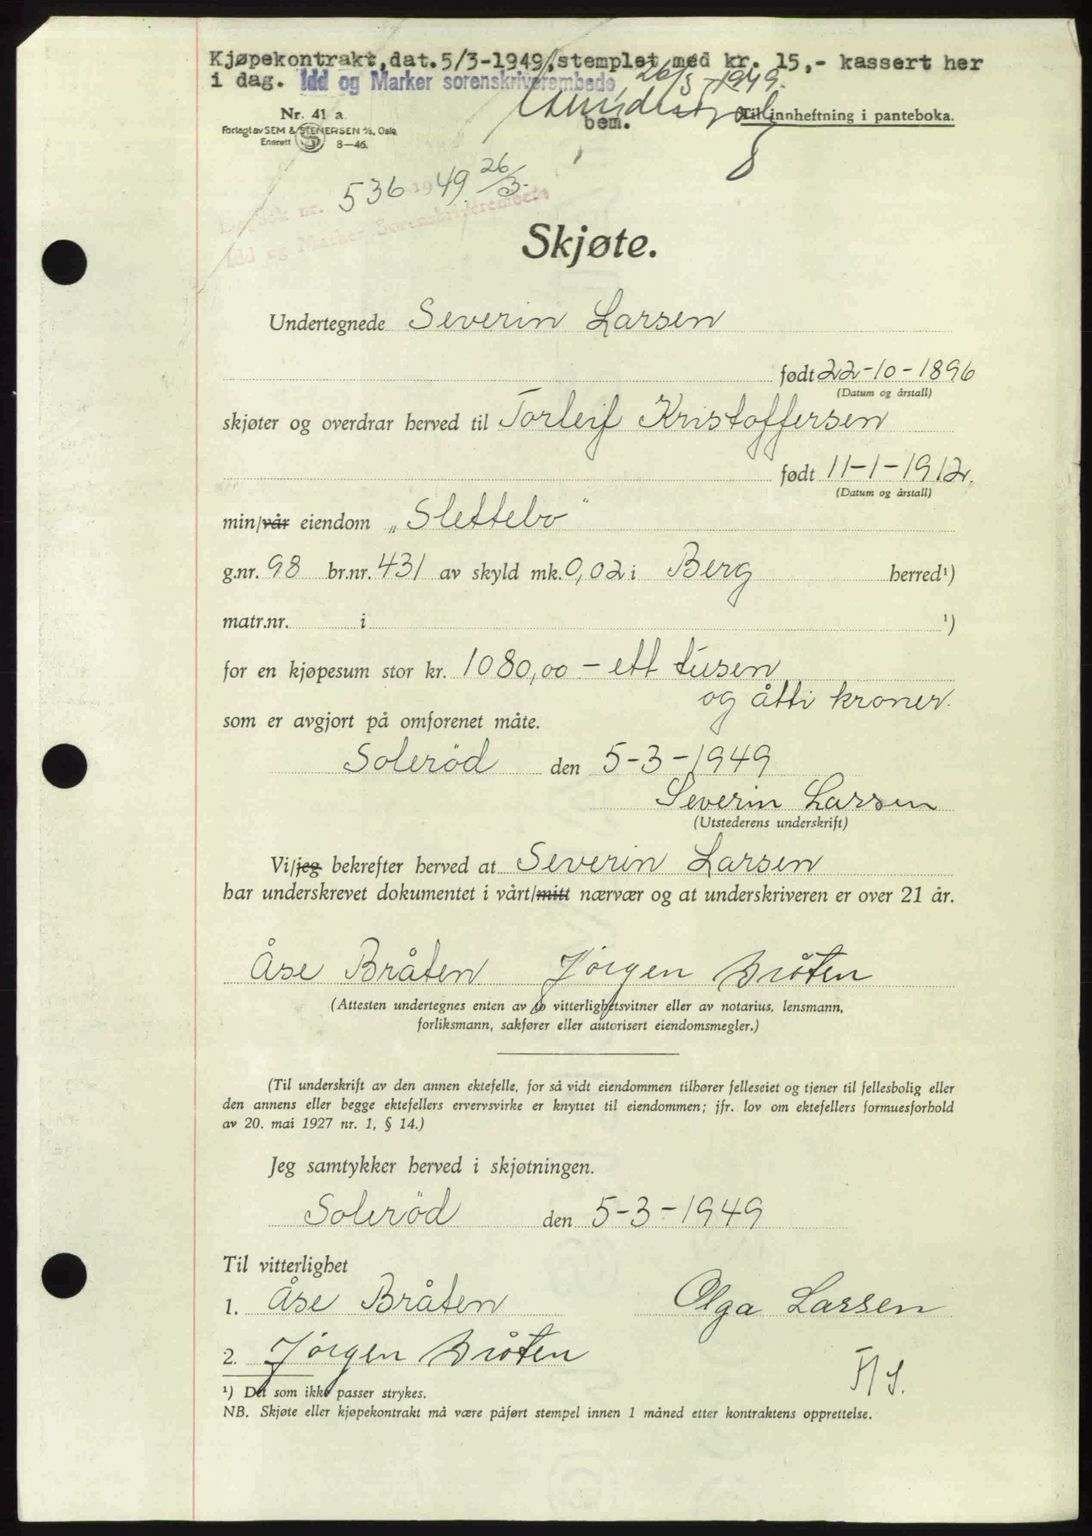 Kjøpekontrakt, dat. 5/3-1949, stemplet med kr. 15,- kassert her
i dag. Idd og Marker sorenskriverembede, 26/3 1949.
Nr. 41 a.
Til innheftning i panteboka.
bem.
Forlagt av SEM & STENERSEN A/S, Oslo
Enerett 8—46.
Dagbok nr. 536 1949 26/3.
Idd og Marker Sorenskriverembede
Skjøte.
Undertegnede Severin Larsen
født 22-10-1896
(Datum og årstall)
skjøter og overdrar herved til Torleif Kristoffersen
født 11-1-1912.
(Datum og årstall)
min/vår eiendom „Slettebo"
g.nr. 98 br.nr. 431 av skyld mk. 0,02 i Berg herred¹)
matr.nr. i ¹)
for en kjøpesum stor kr. 1080,00 - ett tusen
og åtti kroner.
som er avgjort på omforenet måte.
Solerød den 5-3-1949
Severin Larsen
(Utstederens underskrift)
Vi/jeg bekrefter herved at Severin Larsen
har underskrevet dokumentet i vårt/mitt nærvær og at underskriveren er over 21 år.
Åse Bråten Jørgen Bråten
(Attesten undertegnes enten av to vitterlighetsvitner eller av notarius, lensmann,
forliksmann, sakfører eller autorisert eiendomsmegler.)
(Til underskrift av den annen ektefelle, for så vidt eiendommen tilhører felleseiet og tjener til fellesbolig eller
den annens eller begge ektefellers ervervsvirke er knyttet til eiendommen; jfr. lov om ektefellers formuesforhold
av 20. mai 1927 nr. 1, § 14.)
Jeg samtykker herved i skjøtningen.
Solerød den 5-3-1949
Til vitterlighet
1. Åse Bråten Olga Larsen
2. Jørgen Bråten
¹) Det som ikke passer strykes.
NB. Skjøte eller kjøpekontrakt må være påført stempel innen 1 måned etter kontraktens opprettelse.